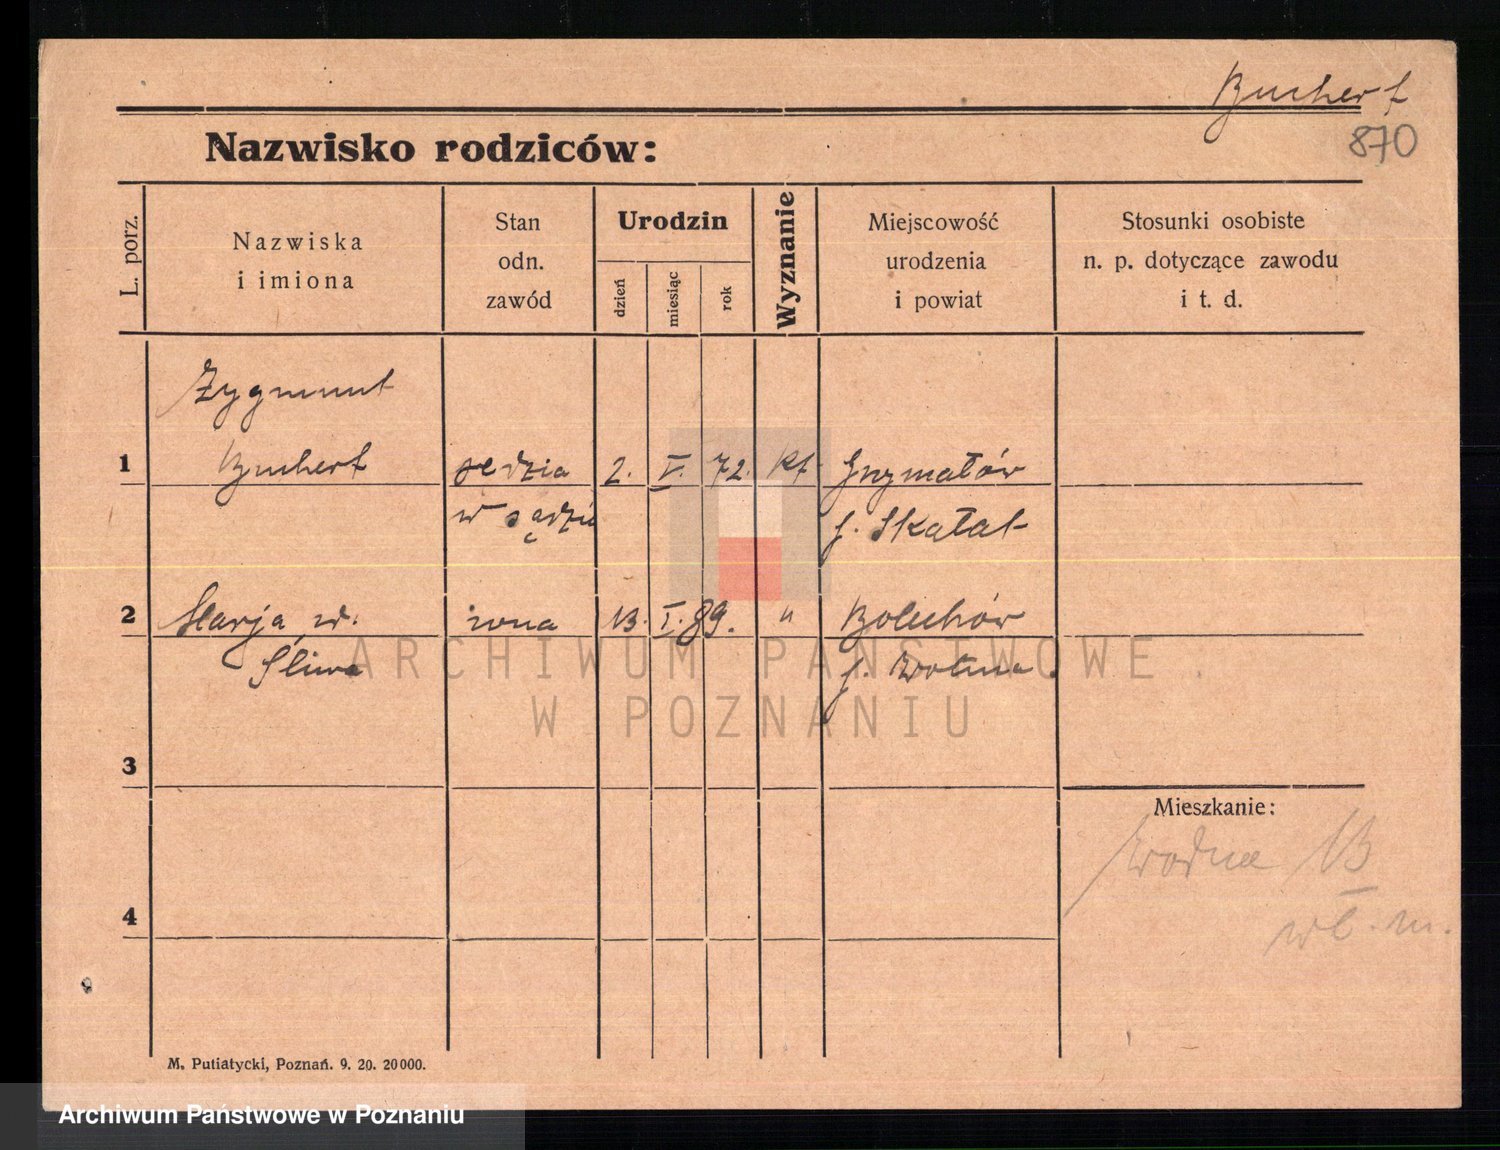 Buchert
870
Nazwisko rodziców:
L. porz.
Nazwiska
i imiona
Stan
odn.
zawód
Urodzin
dzień
miesiąc
rok
Wyznanie
Miejscowość
urodzenia
i powiat
Stosunki osobiste
n. p. dotyczące zawodu
i t. d.
Zygmunt
1 Buchert sędzia 2. V. 72. kt. Grzymałów
w sądzie p. Skałat
2 Marja ur. żona 13. I. 89. " Bolechów
Śliwa p. Dolina
3
Mieszkanie:
Wodna 13
4
wł. m.
M. Putiatycki, Poznań. 9. 20. 20000.
ARCHIWUM PAŃSTWOWE
W POZNANIU
Archiwum Państwowe w Poznaniu